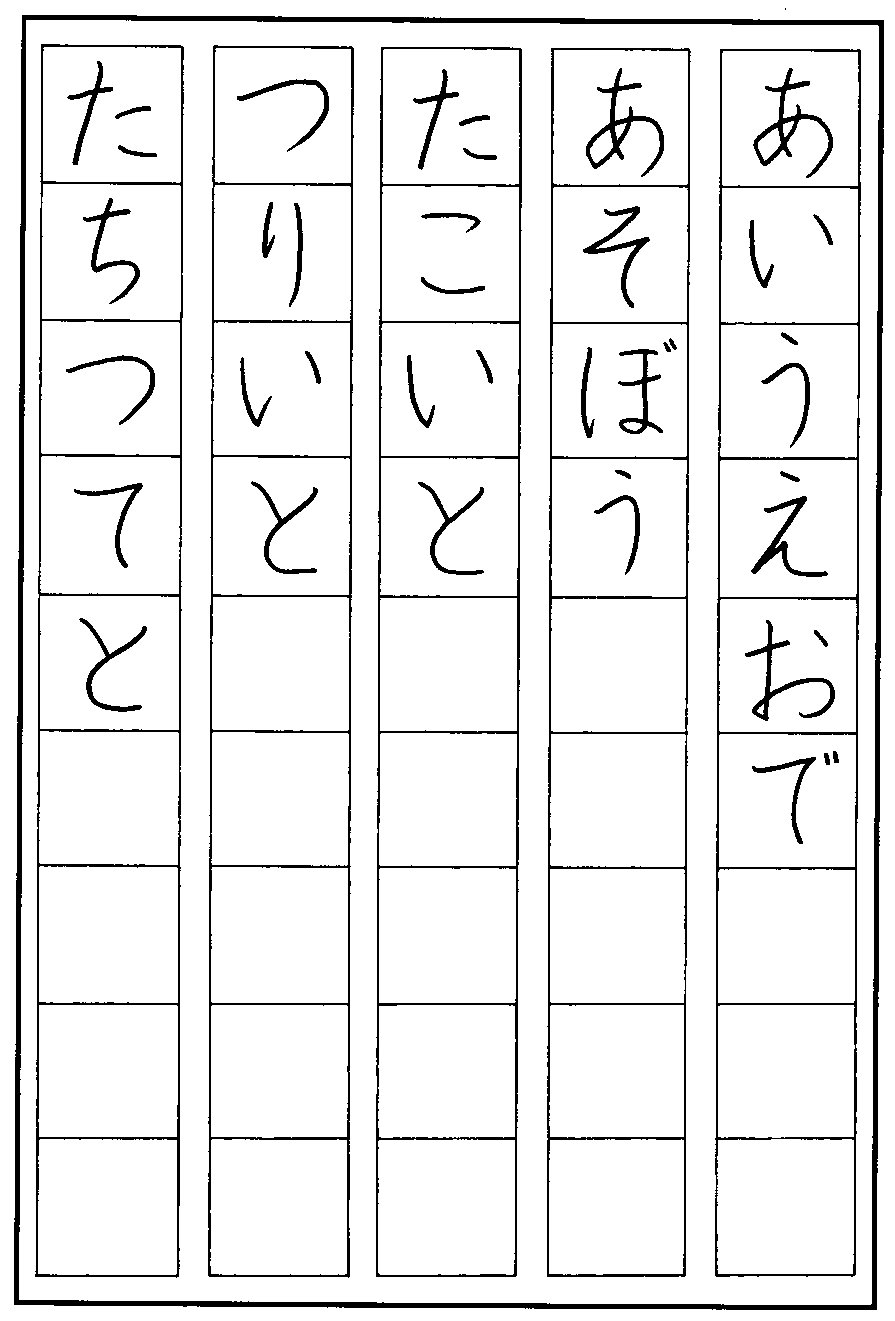 あいうえおで
あそぼう
たこいと
つりいと
たちつてと